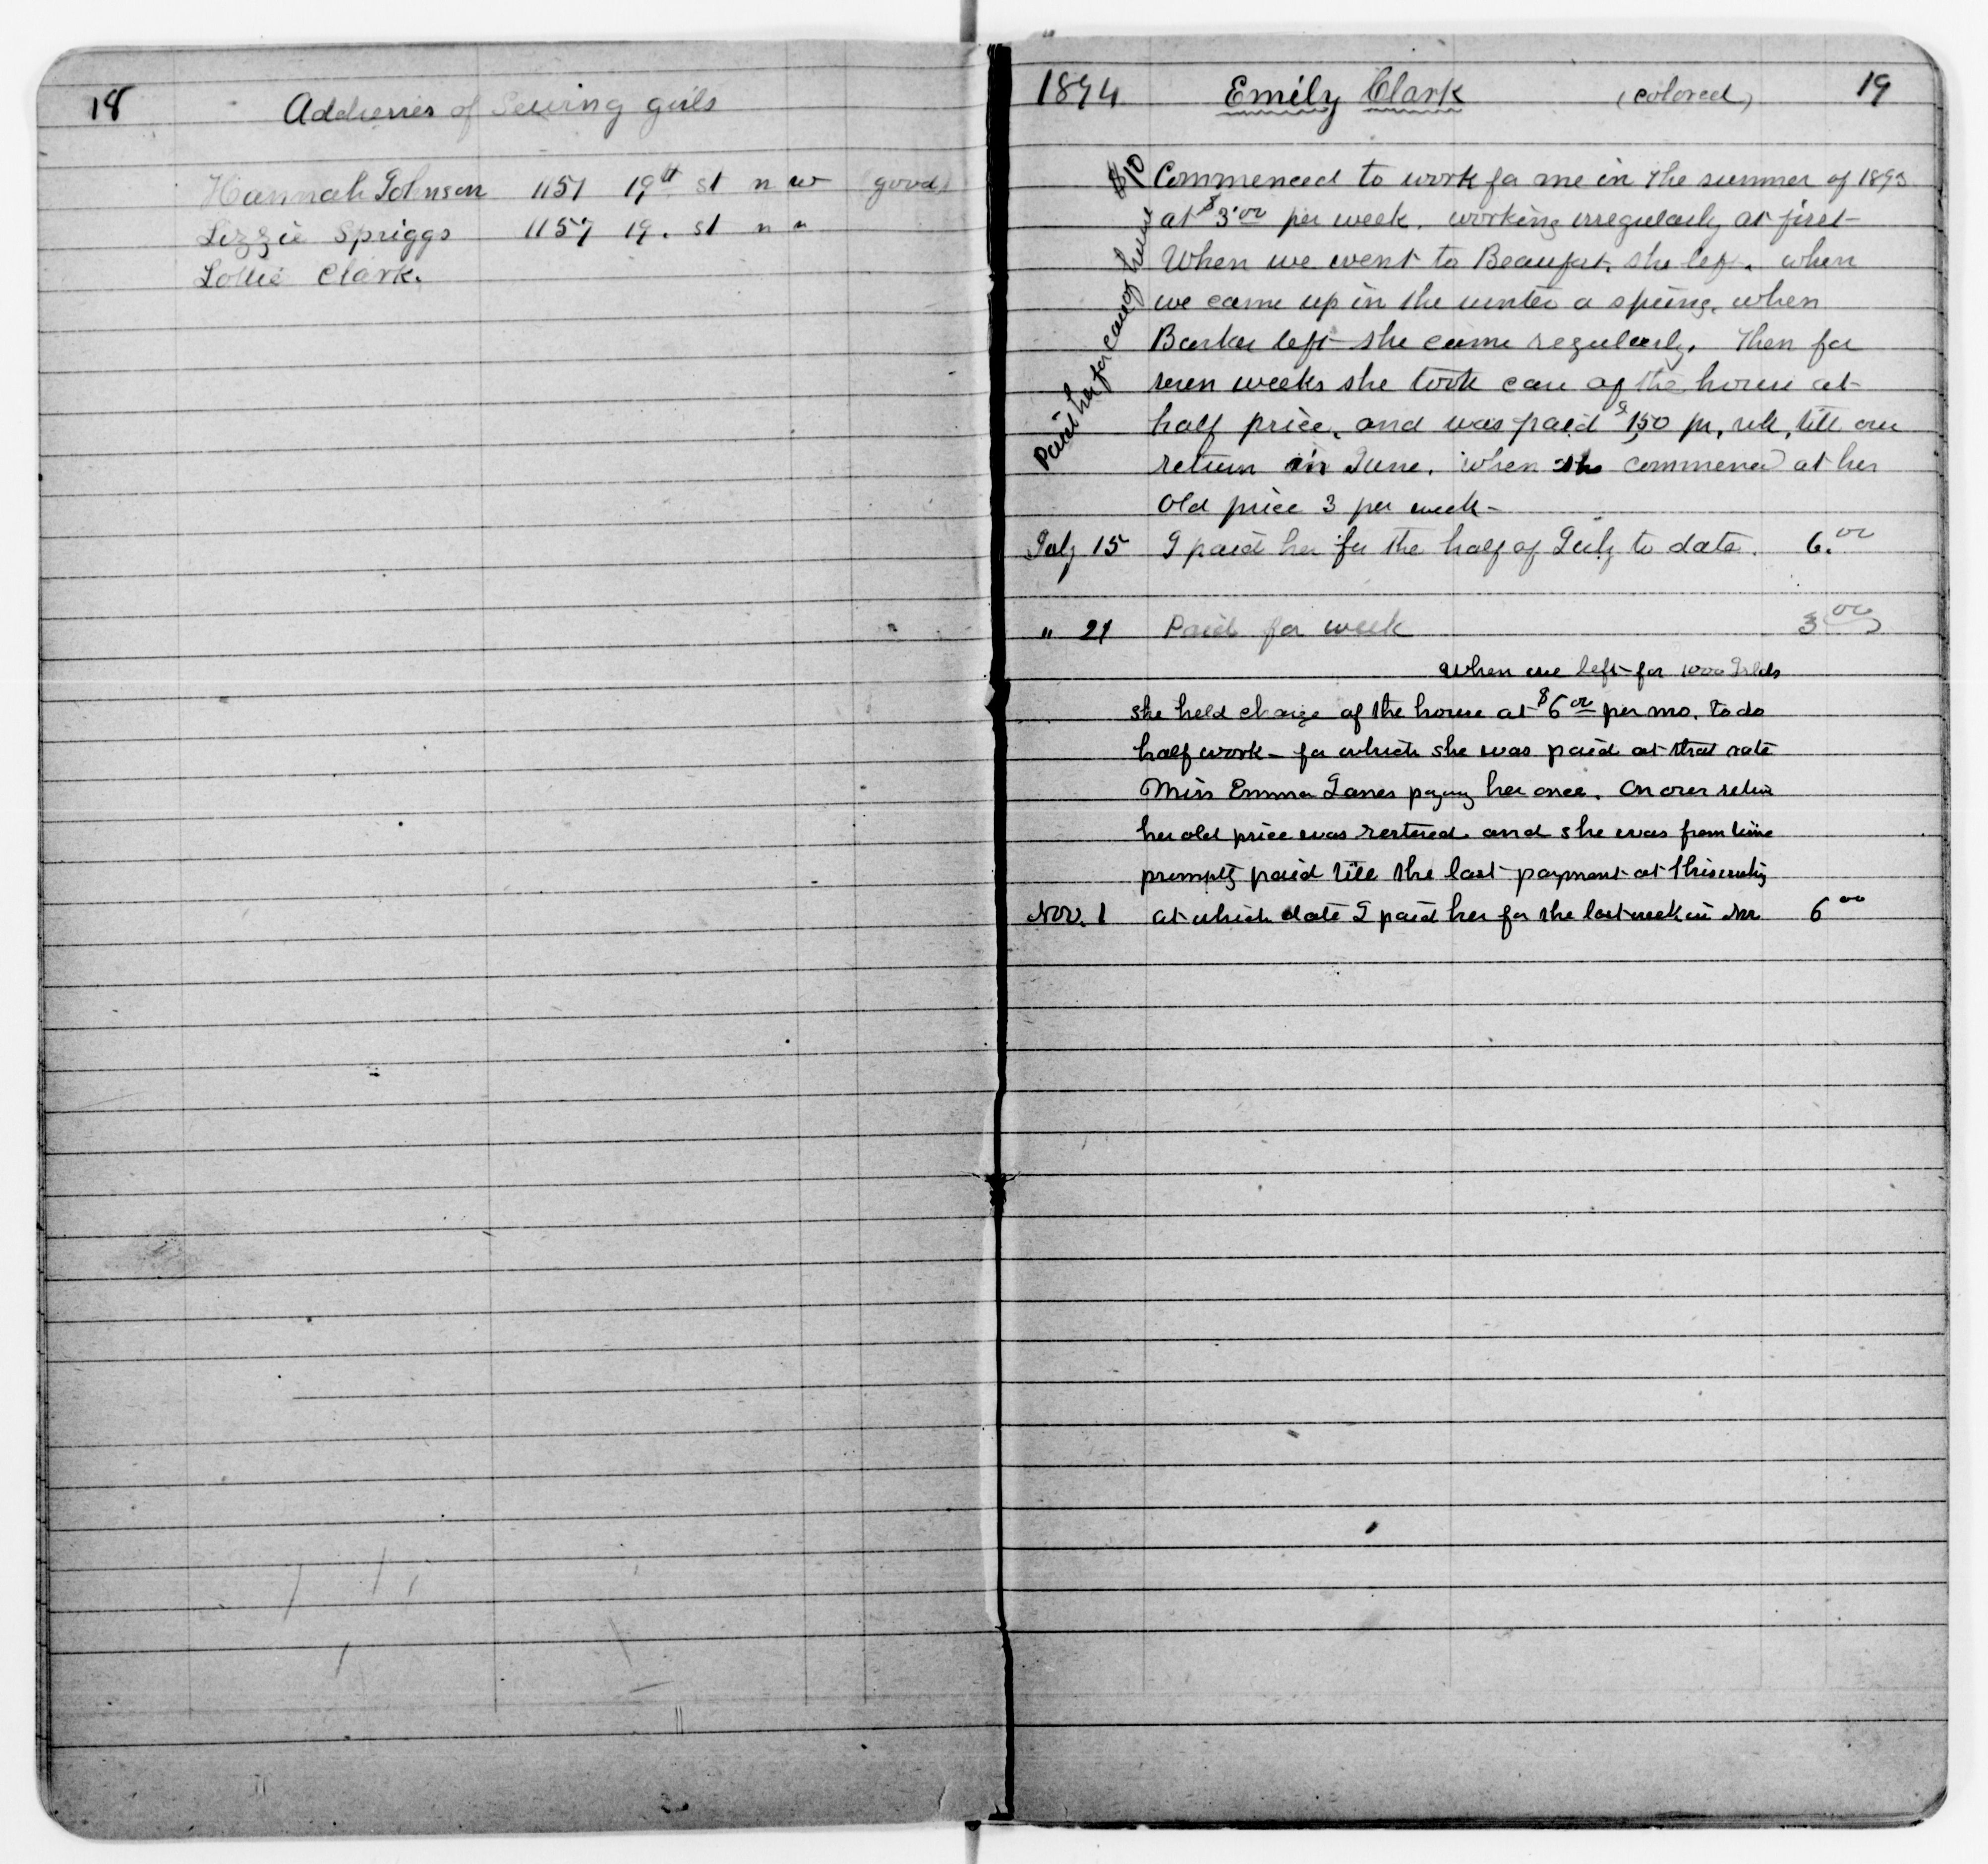 18
Addresses of Sewing girls
Hannah Johnson 1151 19th st n w (good)
Lizzie Spriggs 1157 19. st n "
Lottie Clark.
1894 Emily Clark (colored) 19
Commenced to work for me in the summer of 1893
at $3.00 per week. working irregularly at first-
When we went to Beaufort, she left. when
we came up in the winter or spring, when
Barker left she came regularly. Then for
seven weeks she took care of the house at
half price, and was paid $1,50 pr, wk, till our
return in June. when she commenced at her
old price 3 per week -
$10 Paid her for care of house
July 15 I paid her for the half of July to date. 6.00
" 21 Paid for week 3 00
When we left for 1000 Islds
she held charge of the house at $6 00 per mo. to do
half work - for which she was paid at that rate
Miss Emma Jones paying her once. On our return
her old price was restored and she was from time
promptly paid till the last payment at this writing
Nov. 1 at which date I paid her for the last week in 6 00